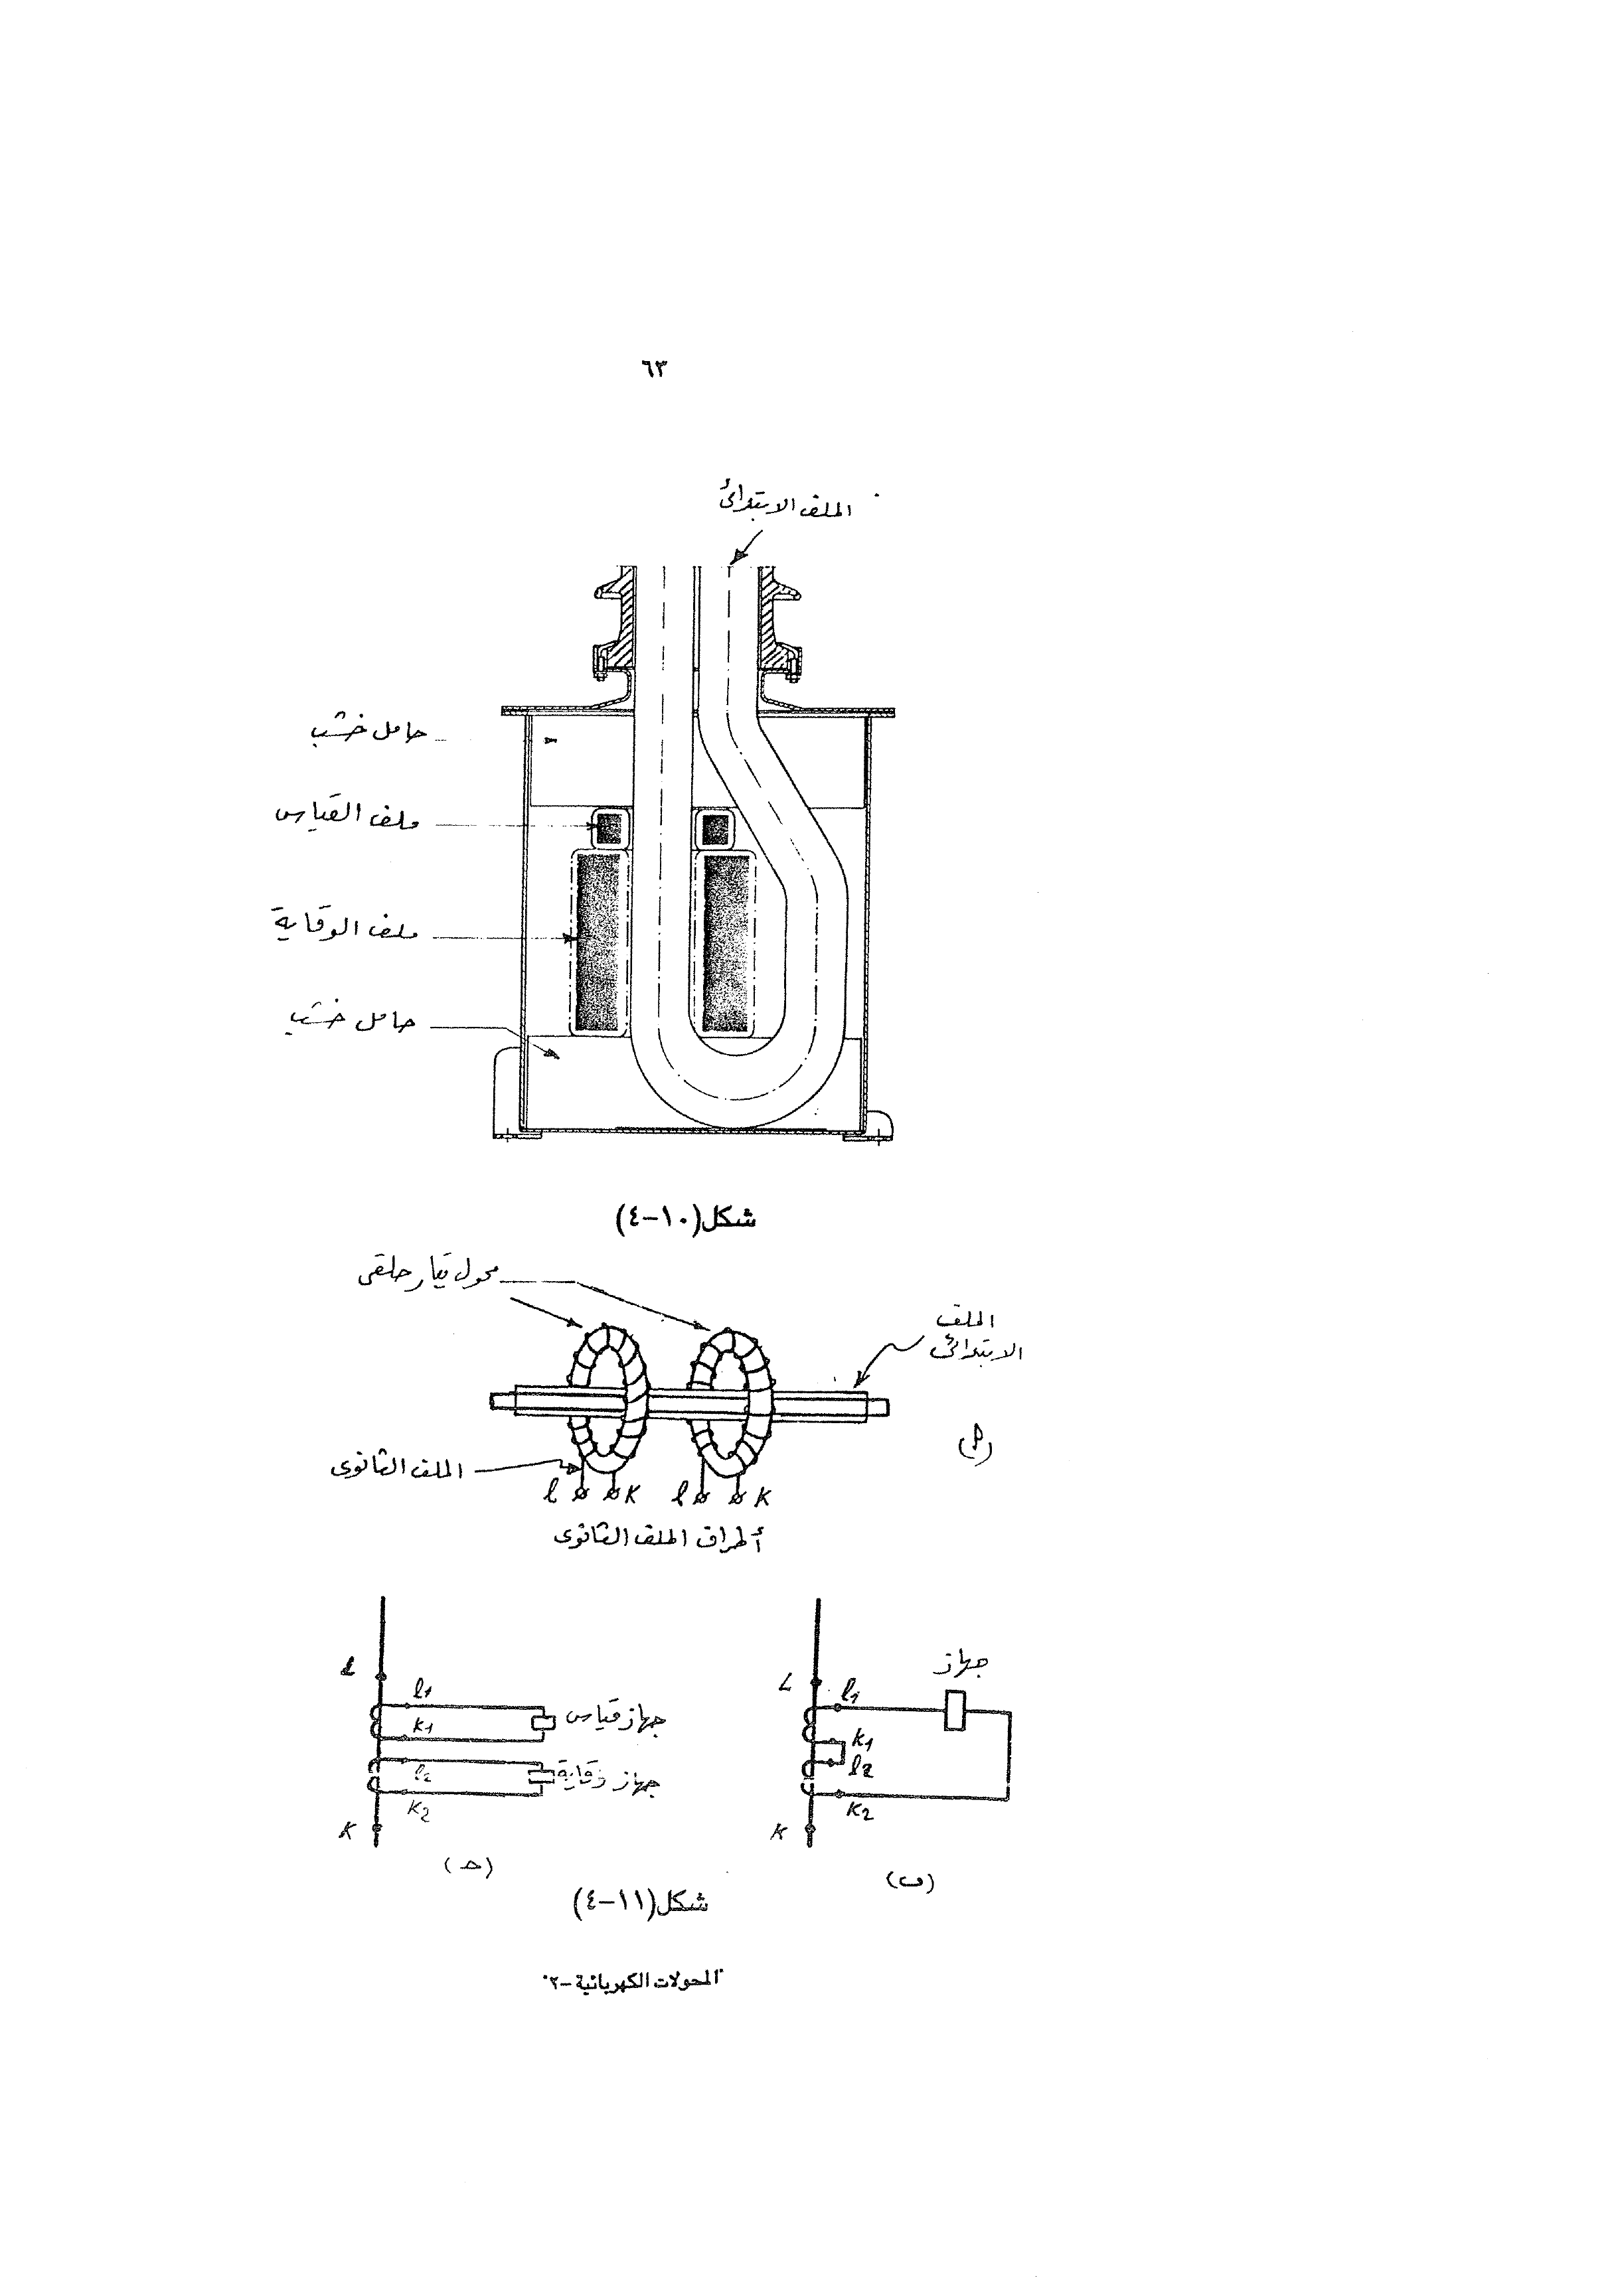 ٦٣
الملف الابتدائى
حامل خشب
ملف القياس
ملف الوقاية
حامل خشب
شكل(١٠-٤)
محول تيار حلقى
الملف
الابتدائى
(أ)
الملف الثانوى
l K l K
أطراف الملف الثانوى
جهاز
L
l1
k1
l2
k2
K
(ب)
L
l1
k1
جهاز قياس
l2
جهاز وقاية
k2
K
(حـ)
شكل(١١-٤)
"المحولات الكهربائية-٢"